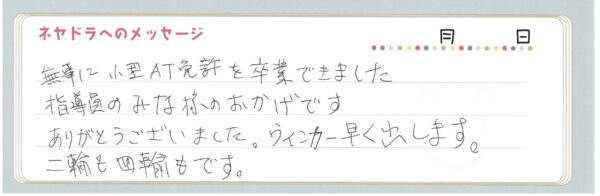 ネヤドラへのメッセージ
月 日
無事に小型AT免許を卒業できました
指導員のみな様のおかげです
ありがとうございました。ウィンカー早く出します。
二輪も四輪もです。